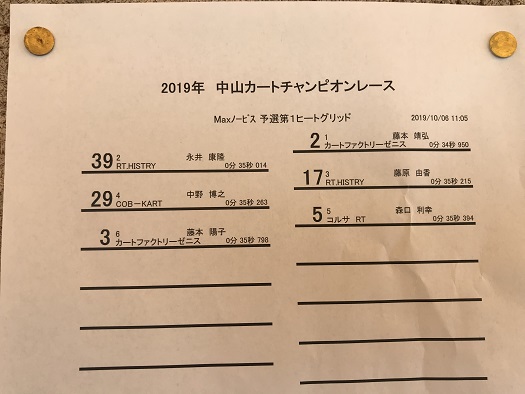 2019年 中山カートチャンピオンレース
Maxノービス 予選第1ヒートグリッド 2019/10/06 11:05
2 1 藤本 靖弘
カートファクトリーゼニス 0分 34秒 950
39 2 永井 康隆
RT.HISTRY 0分 35秒 014
17 3 藤原 由香
RT.HISTRY 0分 35秒 215
29 4 中野 博之
COB－KART 0分 35秒 263
5 5 森口 利幸
コルサ RT 0分 35秒 394
3 6 藤本 陽子
カートファクトリーゼニス 0分 35秒 798